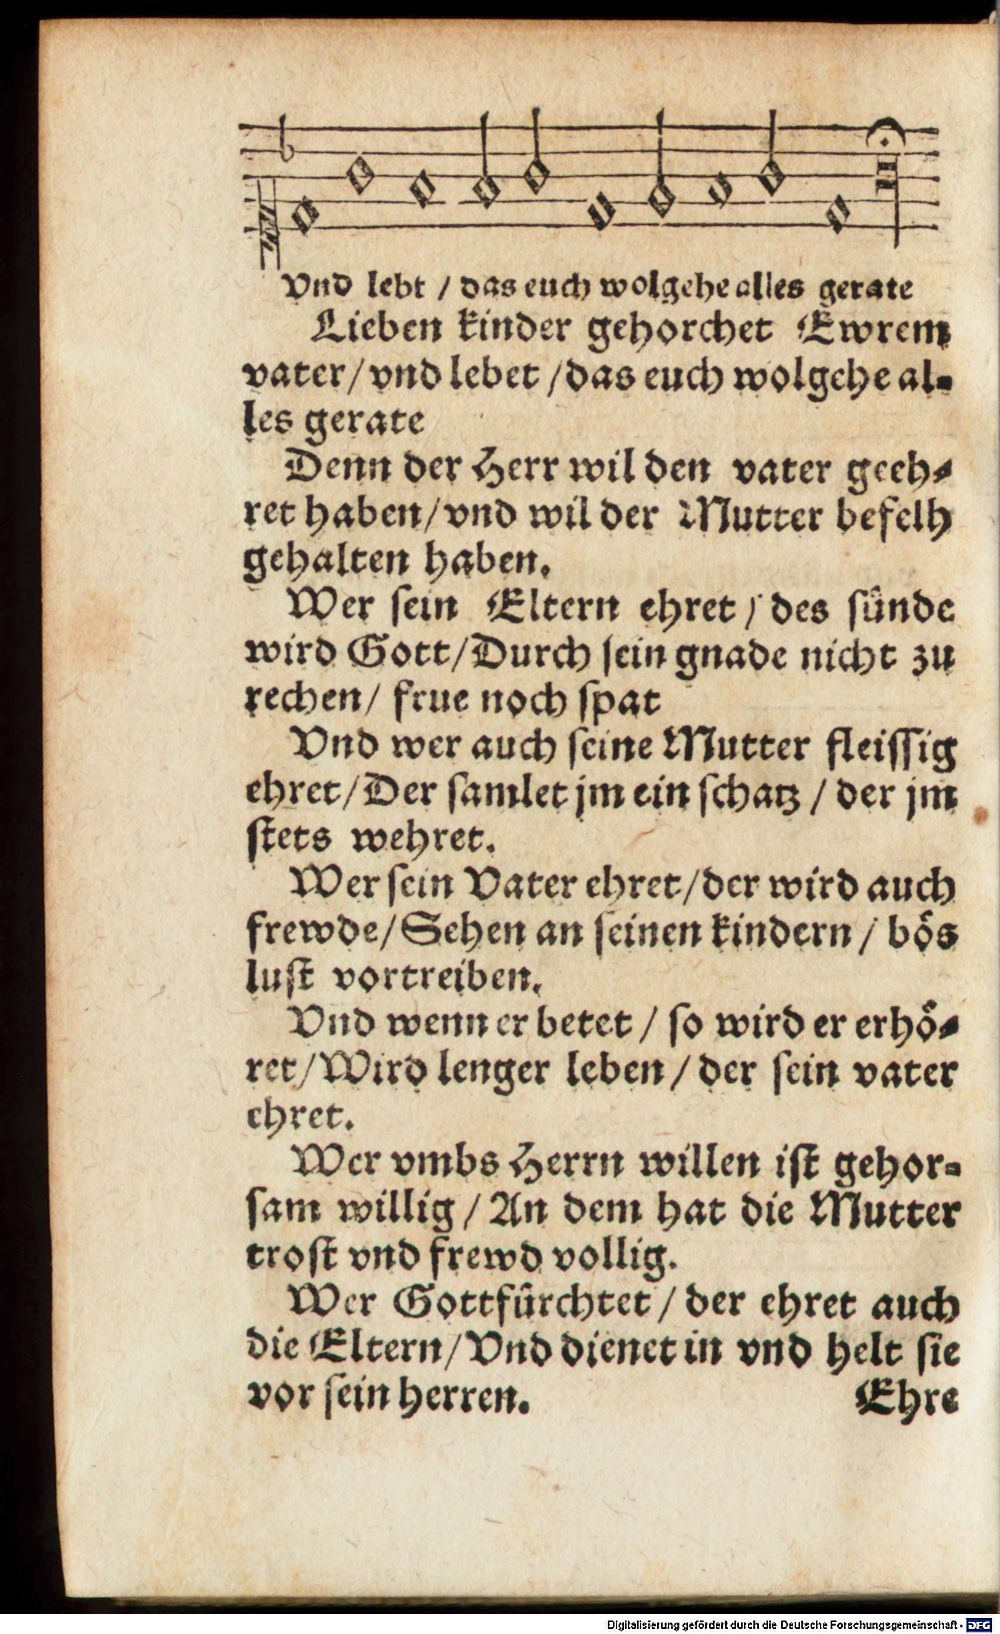 Vnd lebt / das euch wolgehe alles gerate
Lieben kinder gehorchet Ewrem
vater/ vnd lebet /das euch wolgehe al-
les gerate
Denn der Herr wil den vater geeh-
ret haben/ vnd wil der Mutter befelh
gehalten haben.
Wer sein Eltern ehret / des sünde
wird Gott/Durch sein gnade nicht zu
rechen/ frue noch spat
Vnd wer auch seine Mutter fleissig
ehret/Der samlet jm ein schatz / der jm
stets wehret.
Wer sein Vater ehret/der wird auch
frewde/Sehen an seinen kindern / bös
lust vortreiben.
Vnd wenn er betet / so wird er erhö-
ret/Wird lenger leben / der sein vater
ehret.
Wer vmbs Herrn willen ist gehor-
sam willig / An dem hat die Mutter
trost vnd frewd vollig.
Wer Gottfürchtet / der ehret auch
die Eltern/ Vnd dienet in vnd helt sie
vor sein herren. Ehre
Digitalisierung gefördert durch die Deutsche Forschungsgemeinschaft - DFG